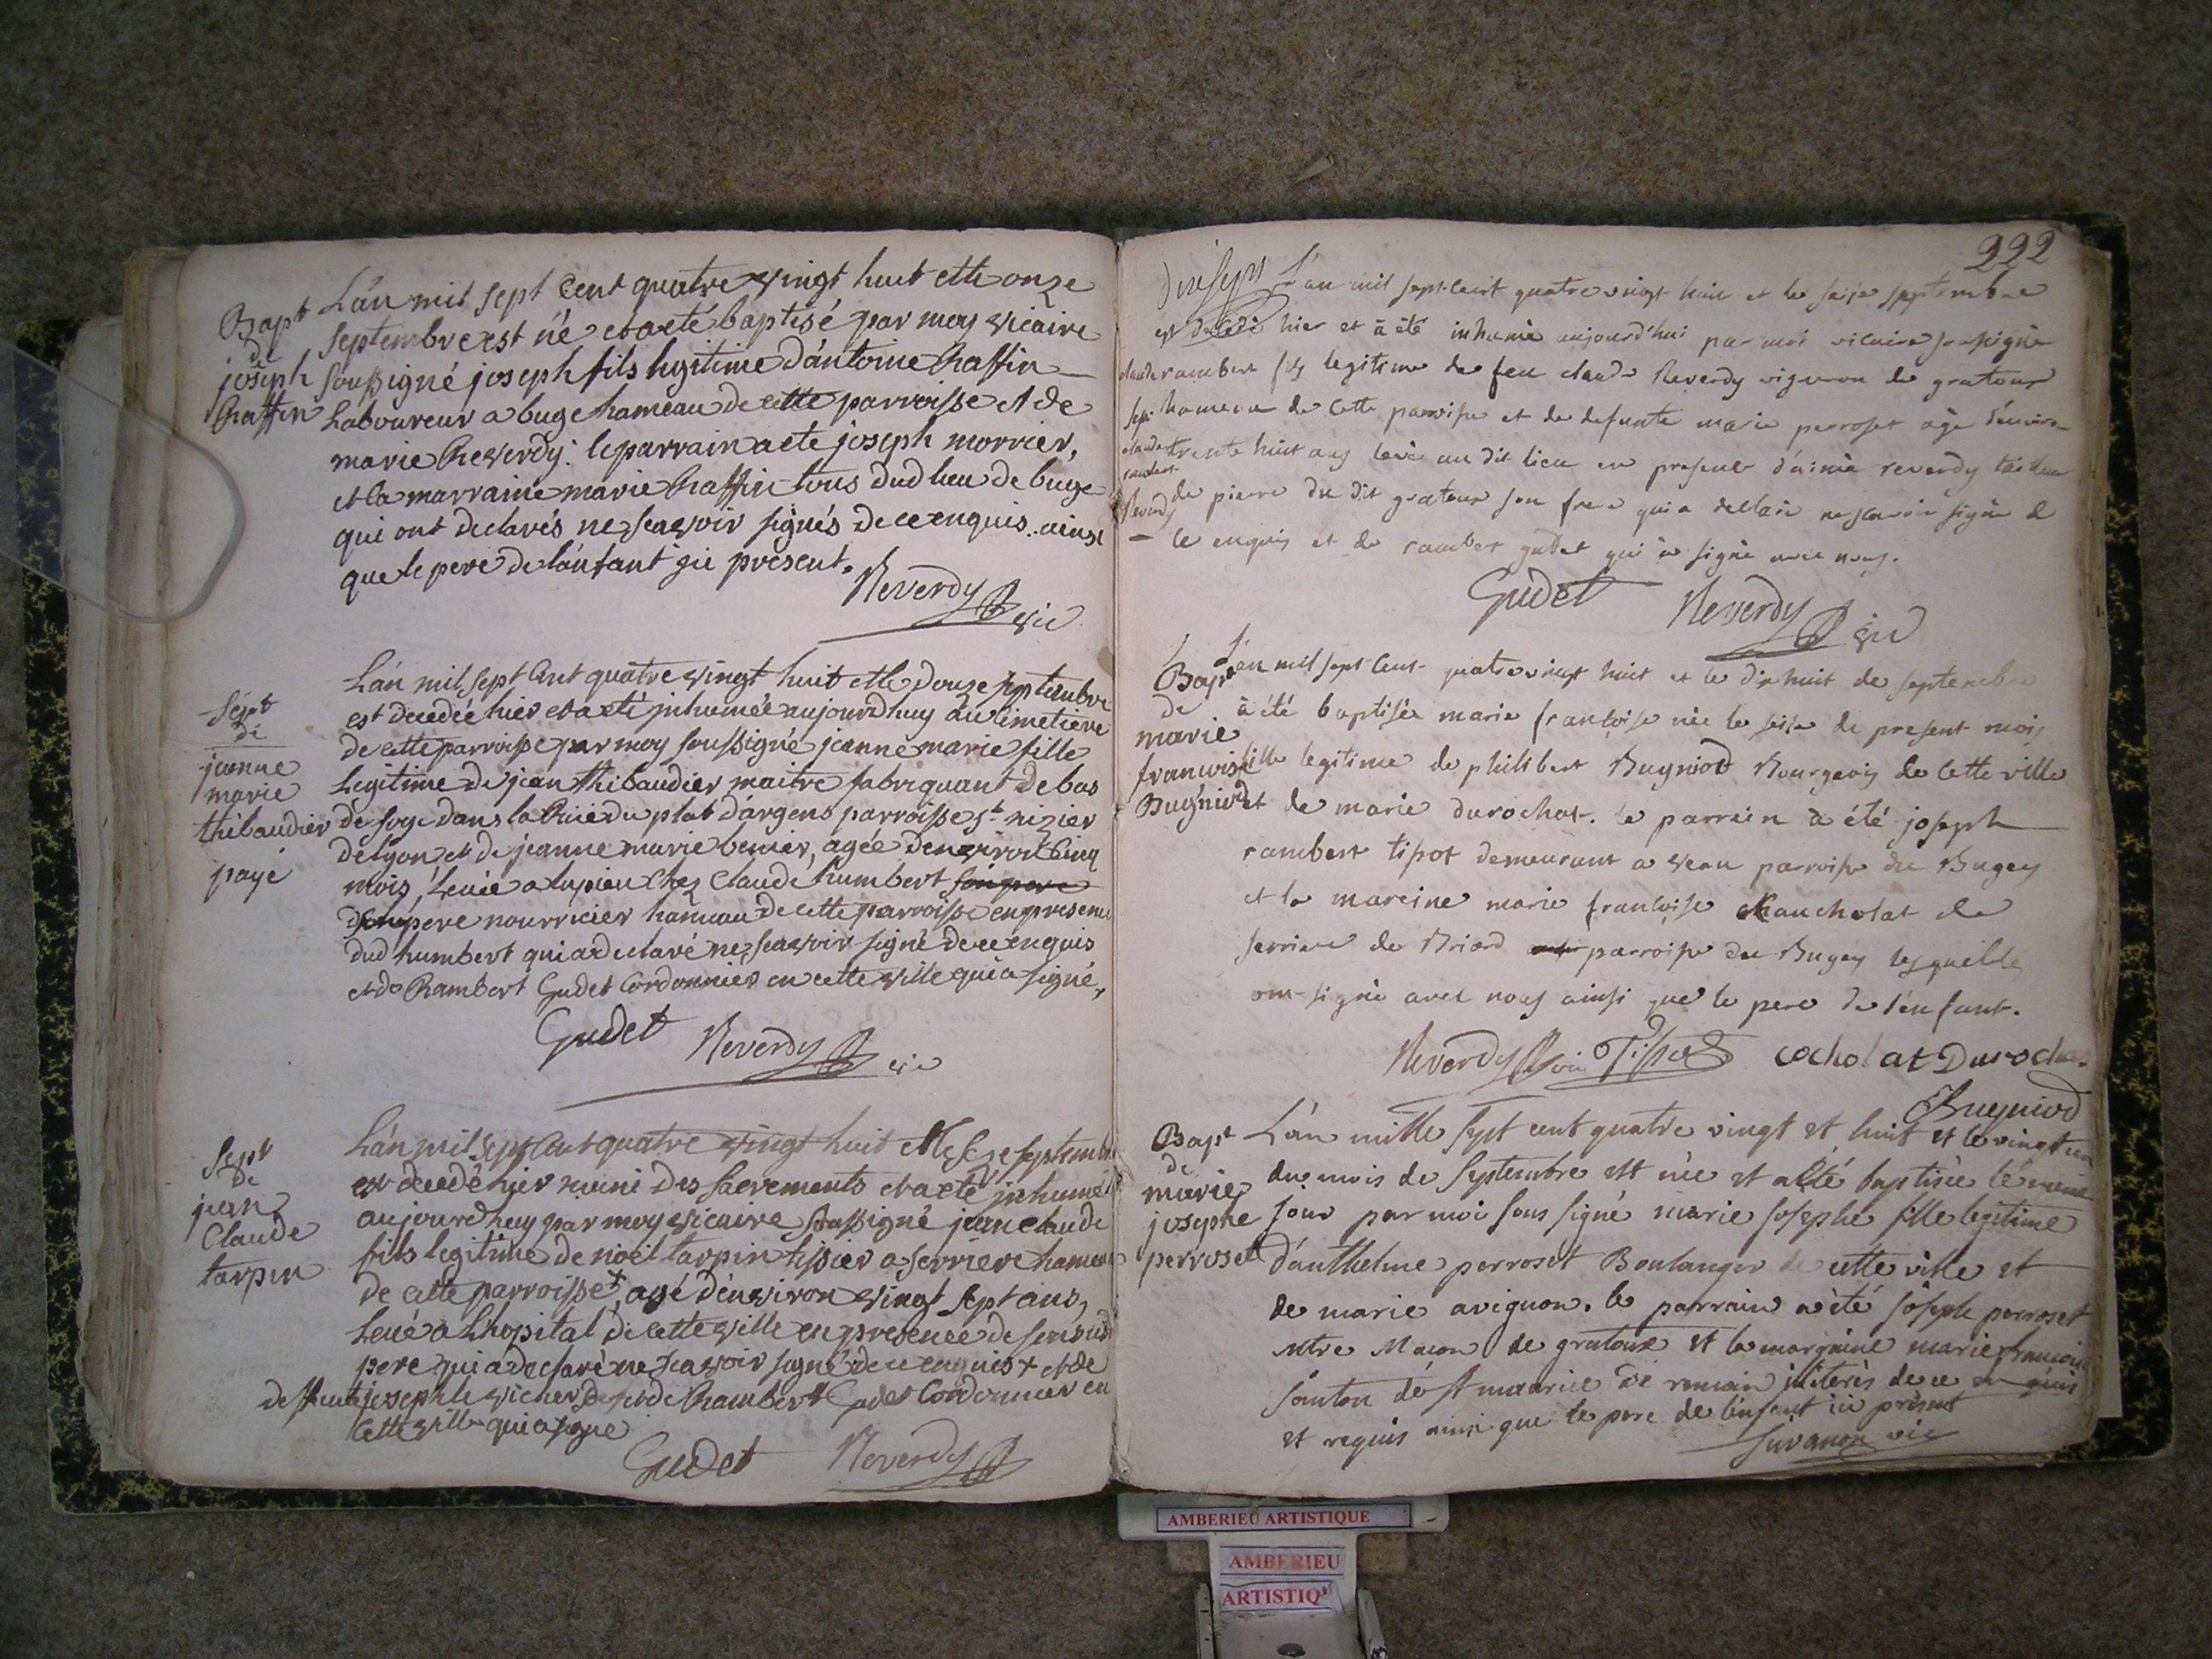 Bapt
de
joseph
Raffin
L'an mil sept cent quatre vingt huit et le onze
septembre est né et a eté baptisé par moy vicaire
soussigné joseph fils legitime d'antoine Raffin
Laboureur a buge hameau de cette parroisse et de
marie Reverdy. le parrain a eté joseph morrier,
et la marraine marie Raffin tous dud lieu de buge
qui ont declarés ne scavoir signés de ce enquis ainsi
que le pere de l'anfant ici présent.
Reverdy vic
Sept
de
jeanne
marie
thibaudier
payé
L'an mil sept cent quatre vingt huit et le douze septembre
est decedée hier et a eté jnhumée aujourdhuy au cimetiere
de cette parroisse par moy soussigné jeanne marie fille
Legitime de jean thibaudier maitre fabriquant de bas
de soye dans la Rue du plat d'argens parroisse st nizier
de lyon et de jeanne marie benier, agée d'environ cinq
mois, levée a lupieu chez Claude humbert son pere
son pere nourricier hameau de cette parroisse en presence
dud humbert qui a declaré ne scavoir signé de ce enquis
et de Rambert Gudet Cordonnier en cette ville qui a signé,
Gudet Reverdy vic
Sept
de
jean
Claude
tarpin
L'an mil sept cent quatre vingt huit et le seze septembre
est decedé hier muni des sacrements et a eté jnhumé
aujourdhuy par moy vicaire soussigné jean claude
fils legitime de noel tarpin tissier a serriere hameau
de cette parroisse, agé d'environ vingt sept ans,
Levé a L'hopital de cette ville en presence de son sud
pere qui a declaré ne scavoir signé de ce enquis + et de
joseph le vicher et de Rambert Gudet Cordonnier en
cette ville qui a signé
Gudet Reverdy
222
L'an mil sept cent quatre vingt huit et le seize septembre
est decedé hier et à été inhumé aujourd'hui par moi vicaire soussigné
claude rambert fils legitime de feu claude Reverdy vigneron de gratoux
hameau de cette parroisse et de defunte marie perroset agé d'environ
trente huit ans levé au dit lieu en presence d'aimé reverdy tailleur
de pierre du dit gratoux son frere qui a declaré ne scavoir signé de
ce enquis et de rambert gudet qui à signé avec nous.
Sept
claude
rambert
Reverdy
Gudet Reverdy vic
Bapt
de
marie
francoise
Bugniod
L'an mil sept cent quatre vingt huit et le dix huit de septembre
à été baptisée marie françoise née le seise du present mois
fille legitime de philibert Bugniod Bourgeois de cette ville
et de marie durochat. le parrein à été joseph
rambert tipot demeurant a veau parroisse du Bugey
et la mareine marie françoise chaucholat de
serriere de Briord parroisse du Bugey lesquelle
ont signé avec nous ainsi que le pere de l'enfant.
Reverdy vic Tissot cocholat Durochat
Bugniod
Bapt
de
marie
josephe
perroset
L'an mille sept cent quatre vingt et huit et le vingt un
du mois de septembre est née et a été baptisée le meme
jour par moi sous signé marie josephe fille legitime
d'anthelme perroset Boulanger de cette ville et
de marie avignon. le parrain a été joseph perroset
mtre Macon de gratoux et la marraine marie francoise
santon de st maurice de remain illiterés de ce enquis
et requis ainsi que le pere de l'enfant ici présent
Juvanon vic
AMBERIEU ARTISTIQUE
AMBERIEU
ARTISTIQ